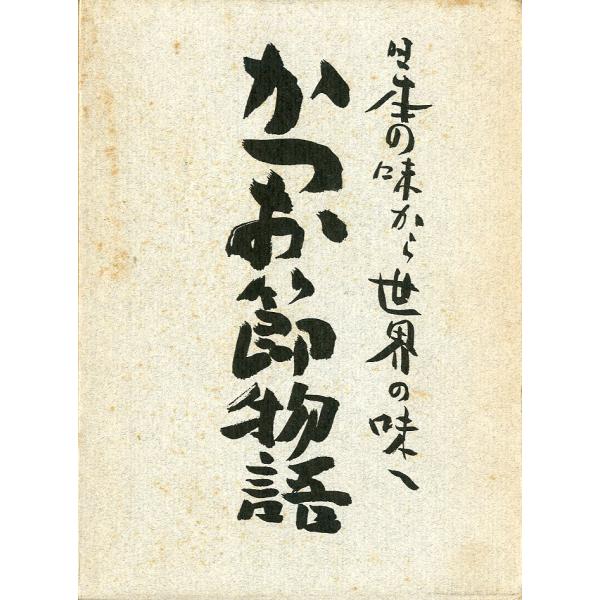 日本の味から世界の味へ
かつお節物語